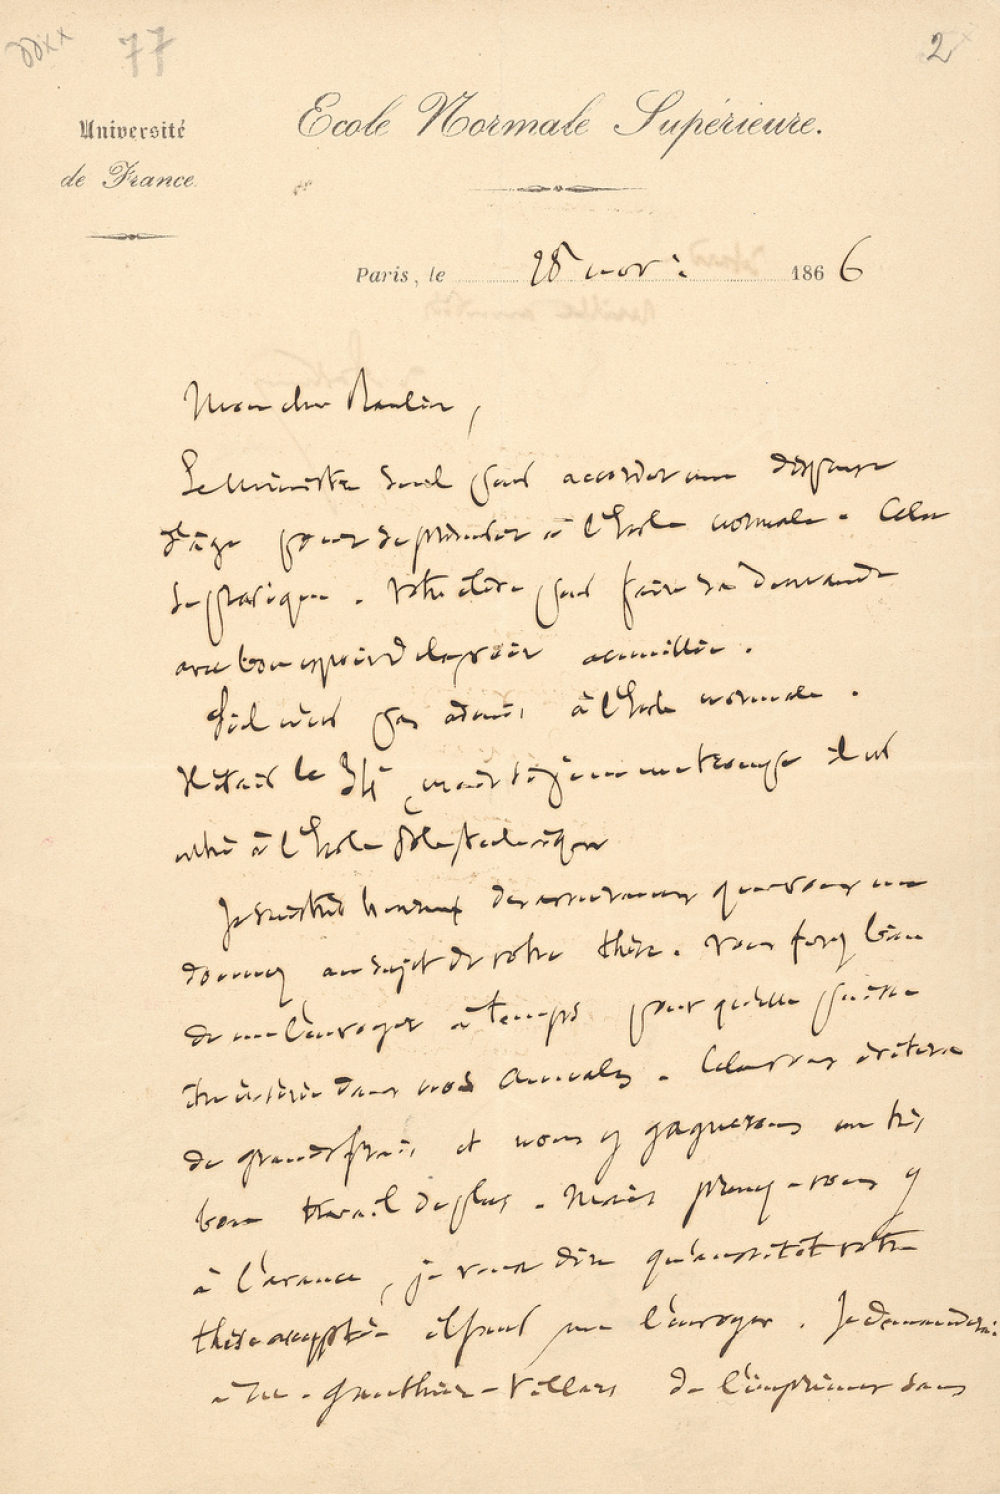 77
2
Université
de France
Ecole Normale Supérieure.
Paris, le 28 nov. 1866
Mon cher Raulin,
Le ministre seul peut accorder une dispense
d'âge pour se présenter à l'Ecole normale. Cela
se pratique. Votre élève peut faire sa demande
avec bon espoir de la voir accueillie.
Gil n'est pas admis à l'Ecole normale.
Il était le mais si je ne me trompe il est
entré à l'Ecole Polytechnique
Je suis très heureux des assurances que vous me
donnez au sujet de votre thèse. Vous ferez bien
de me l'envoyer à temps pour qu'elle puisse
être insérée dans nos Annales. Cela vous évitera
de grands frais et nous y gagnerons un très
bon travail de plus. Mais prenez-vous y
à l'avance, je veux dire qu'aussitôt votre
thèse acceptée il faut me l'envoyer. Je demanderai
à M. Gauthier-Villars de l'imprimer dans